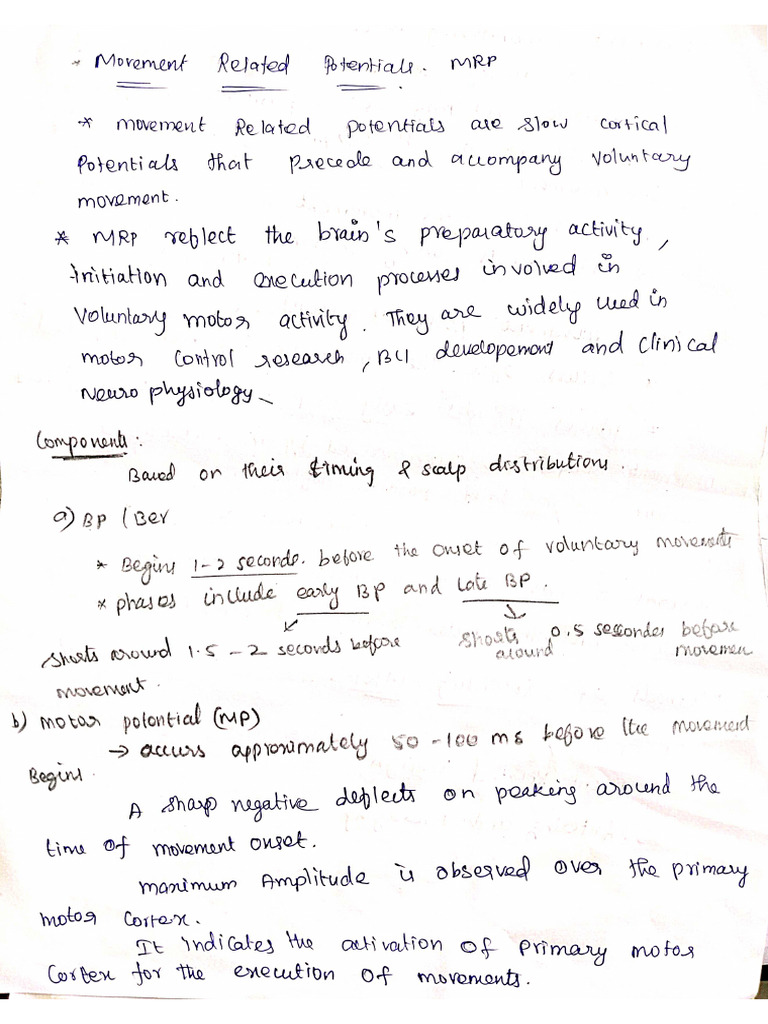 * Movement Related Potentials. MRP
* Movement Related potentials are slow cortical
Potentials that precede and accompany voluntary
movement.
* MRP reflect the brain's preparatory activity,
Initiation and execution processes involved in
Voluntary motor activity. They are widely used in
motor control research, BCI developement and clinical
Neuro physiology
Components:
Based on their timing & scalp distributions.
a) BP / Ber
* Begins 1-2 seconds. before the onset of voluntary movements
* phases include early BP and late BP.
Shorts around 1.5 - 2 seconds before
movement.
Shorts around 0.5 sesconder before
movemen
b) motor potential (MP)
→ occurs approximately 50-100 ms before the movement
Begins.
A sharp negative deflects on peaking around the
time of movement onset.
maximum Amplitude is observed over the primary
motor cortex.
It indicates the activation of primary motor
Cortex for the execution of movements.